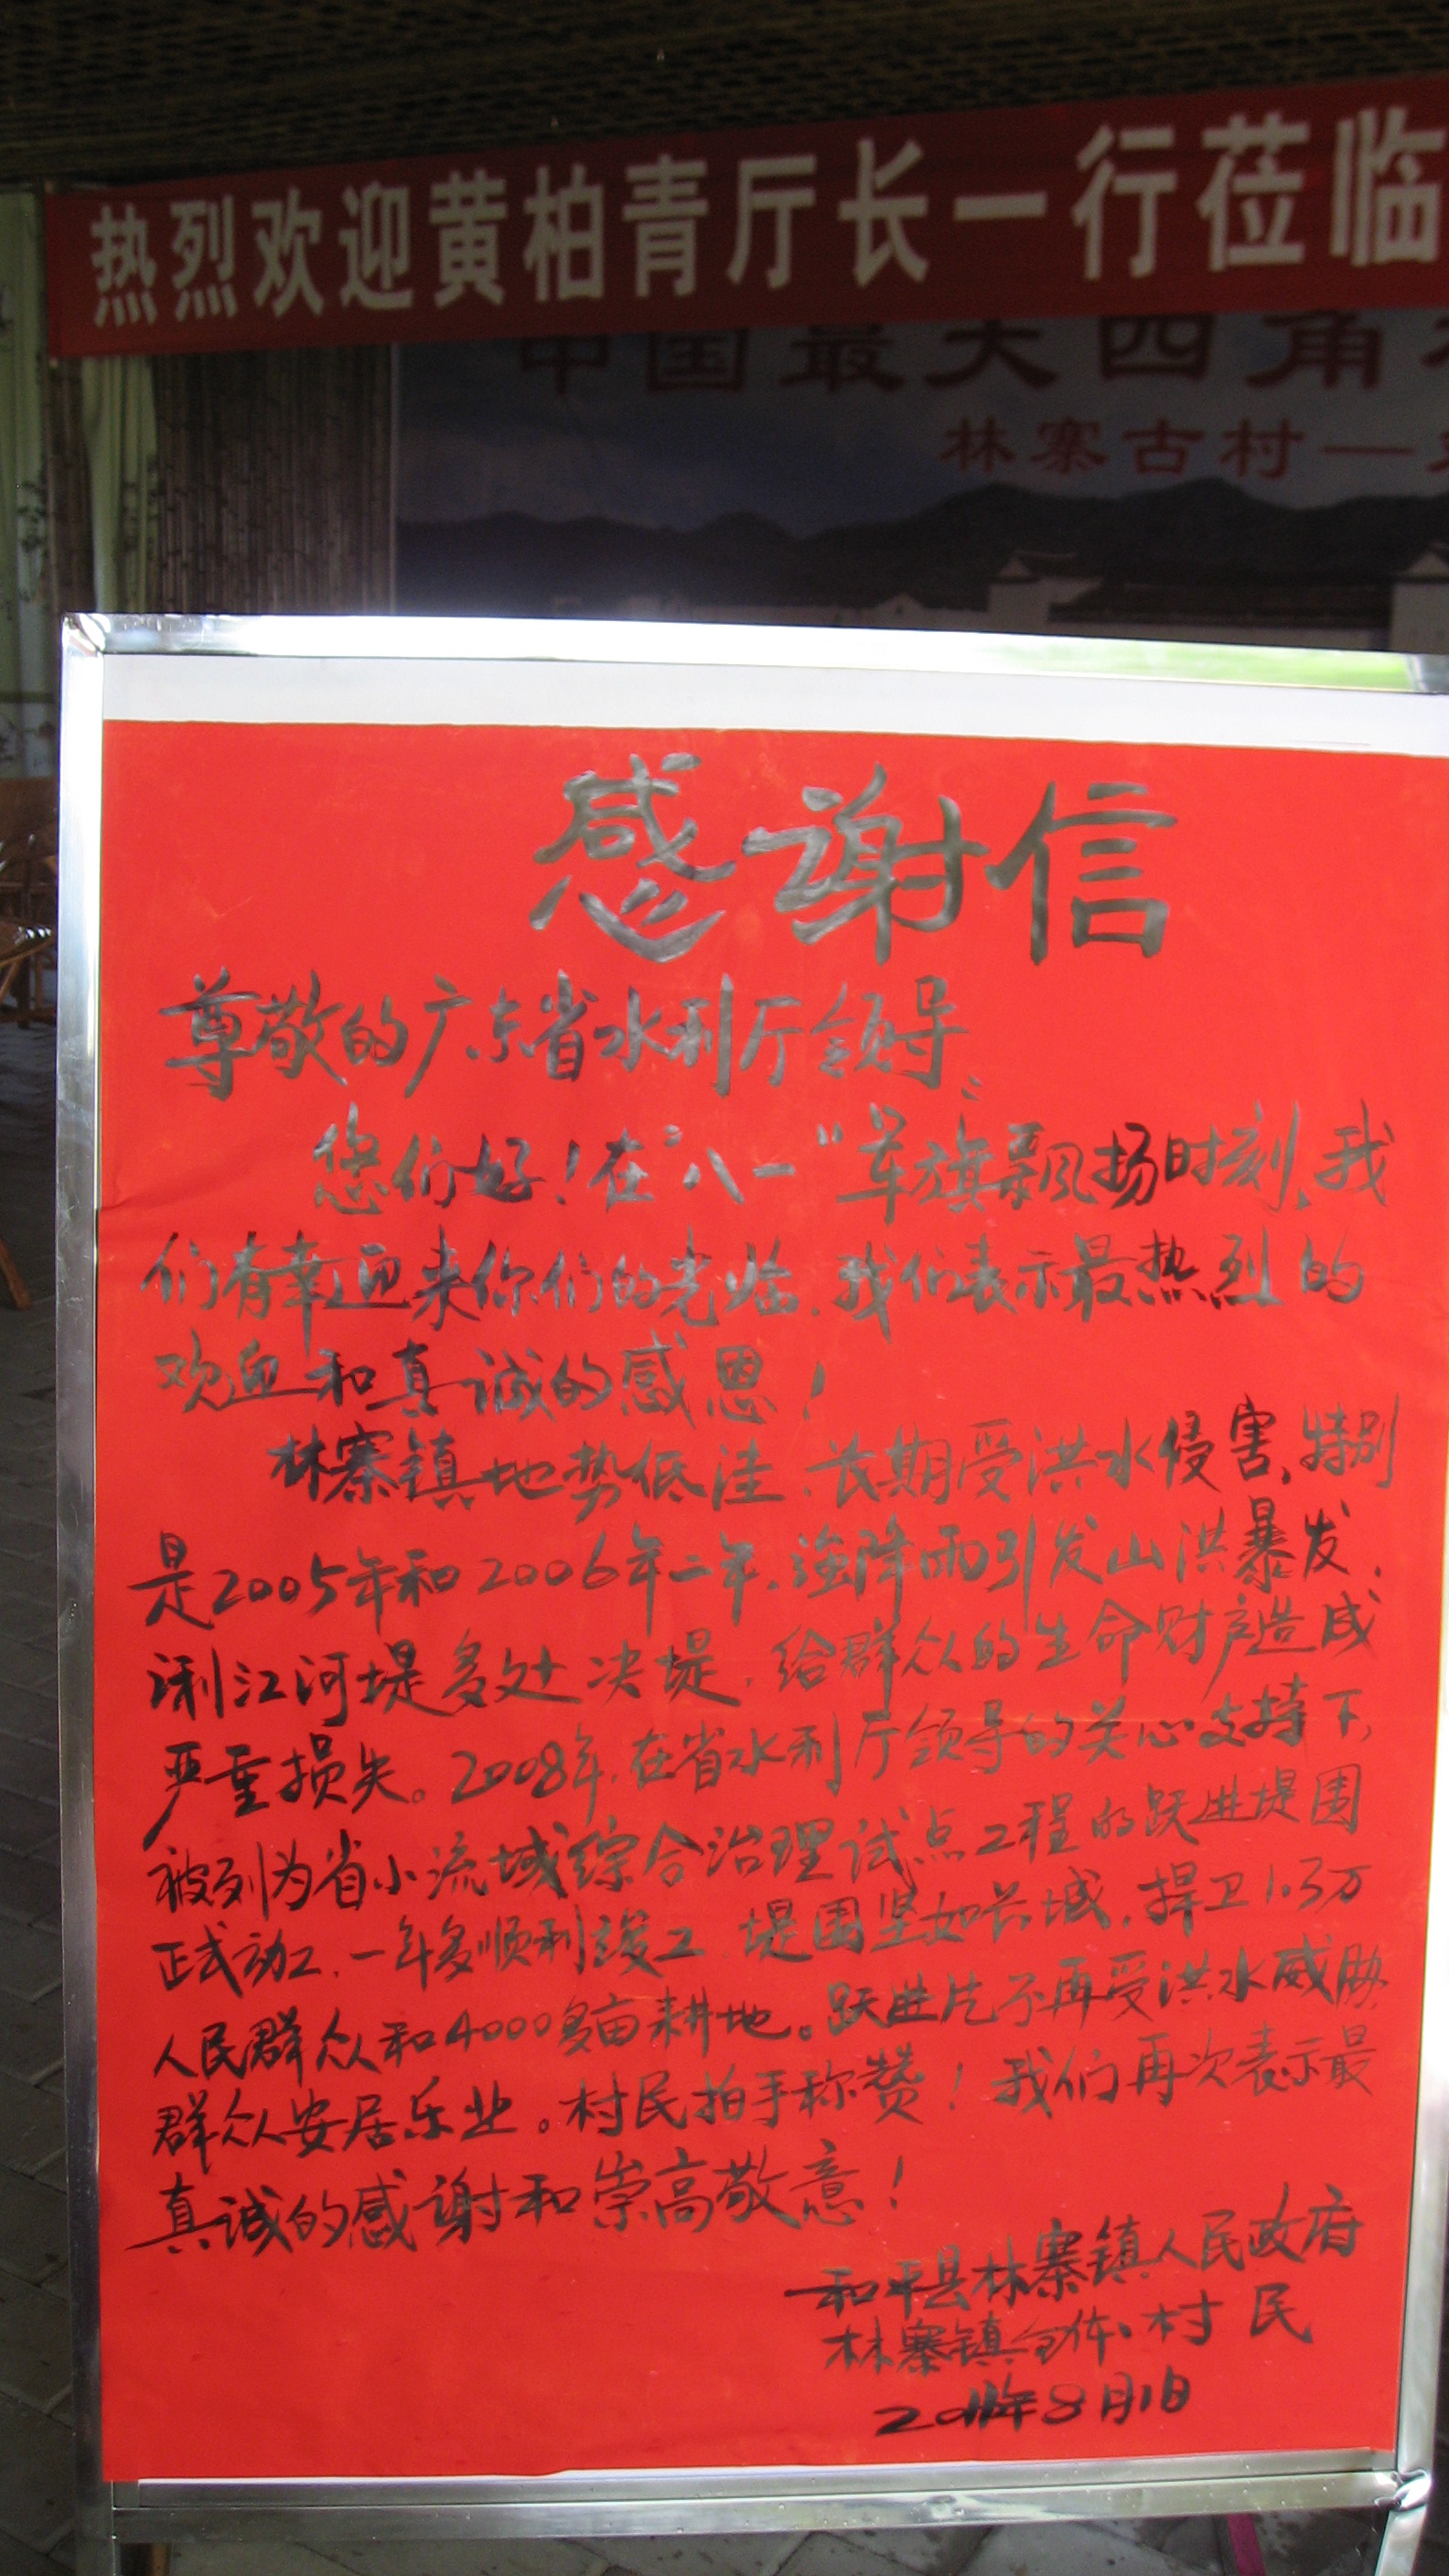 热烈欢迎黄柏青厅长一行莅临
中国最大四角
林寨古村一
感谢信
尊敬的广东省水利厅领导：
您们好！在“八一”军旗飘扬时刻，我
们有幸迎来你们的光临，我们表示最热烈的
欢迎和真诚的感恩！
林寨镇地势低洼，长期受洪水侵害，特别
是2005年和2006年二年，强降雨引发山洪暴发，
浰江河堤多处决堤，给群众的生命财产造成
严重损失。2008年，在省水利厅领导的关心支持下，
被列为省小流域综合治理试点工程的跃进堤围
正式动工，一年多顺利竣工，堤围坚如长城，捍卫1.3万
人民群众和4000多亩耕地。跃进片不再受洪水威胁，
群众安居乐业。村民拍手称赞！我们再次表示最
真诚的感谢和崇高敬意！
和平县林寨镇人民政府
林寨镇全体村民
2011年8月1日